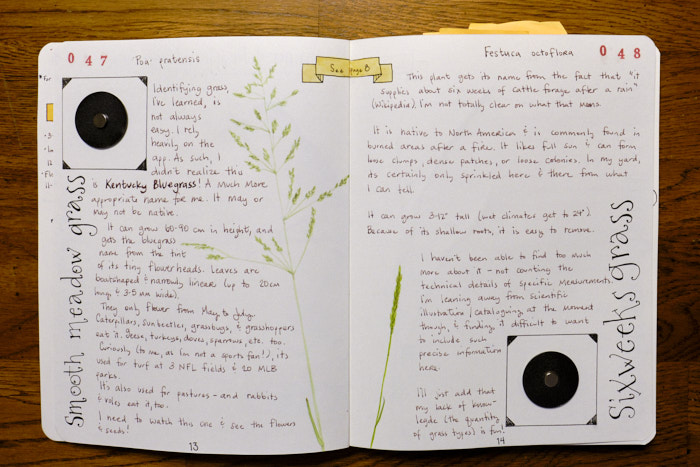 047
Poa pratensis
Identifying grass,
I've learned, is
not always
easy. I rely
heavily on the
app. As such, I
didn't realize this
is Kentucky Bluegrass! A much more
appropriate name for me. It may or
may not be native.
It can grow 60-90 cm in height, and
gets the bluegrass
name from the tint
of its tiny flowerheads. Leaves are
boatshaped & narrowly linear (up to 20cm
long, & 3-5 mm wide).
They only flower from May to July.
Caterpillars, sun beetles, grassbugs, & grasshoppers
eat it. Geese, turkeys, doves, sparrows, etc. too.
Curiously (to me, as I'm not a sports fan!), it's
used for turf at 3 NFL fields & 20 MLB
parks.
It's also used for pastures - and rabbits
& voles eat it, too.
I need to watch this one & see the flowers
& seeds!
Smooth meadow grass
13
See page 8
Festuca octoflora
048
This plant gets its name from the fact that "it
supplies about six weeks of cattle forage after a rain"
(Wikipedia). I'm not totally clear on what that means.
It is native to North American & is commonly found in
burned areas after a fire. It likes full sun & can form
loose clumps, dense patches, or loose colonies. In my yard,
its certainly only sprinkled here & there from what
I can tell.
It can grow 3-12" tall (wet climates get to 24").
Because of its shallow roots, it is easy to remove.
I haven't been able to find too much
more about it - not counting the
technical details of specific measurements.
I'm leaning away from scientific
illustration/cataloguing at the moment
though, & finding it difficult to want
to include such
precise information
here.
I'll just add that
my lack of know-
legde (the quantity
of grass types) is fun!
Sixweeks grass
14